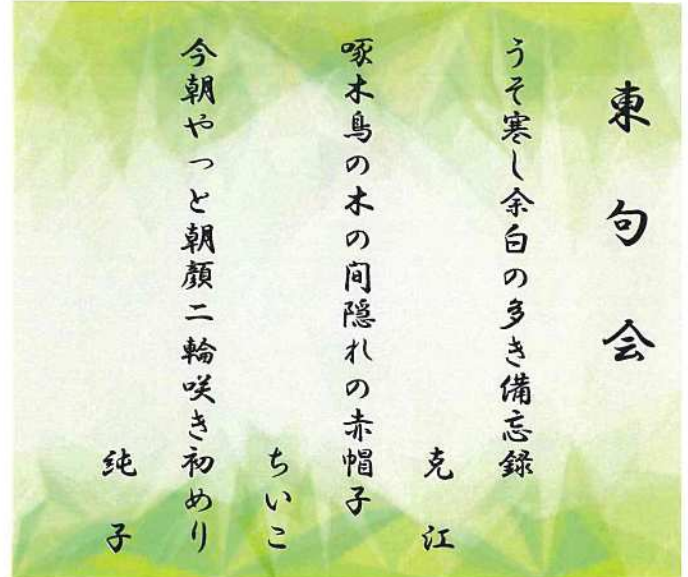 東句会
うそ寒し余白の多き備忘録
克江
啄木鳥の木の間隠れの赤帽子
ちいこ
今朝やっと朝顔二輪咲き初めり
純子